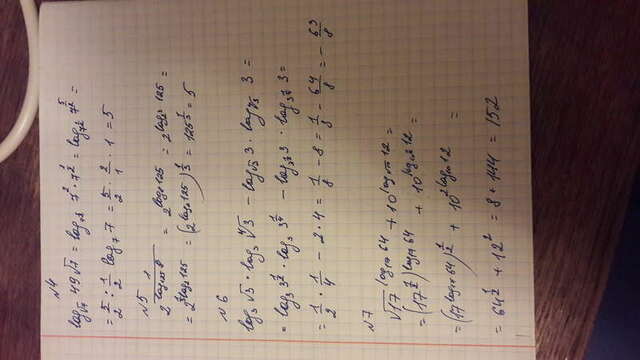 №4
log_√7 49√7 = log_{7^{1/2}} 7^2 · 7^{1/2} = log_{7^{1/2}} 7^{5/2} =
= 5/2 : 1/2 log_7 7 = 5/2 · 2/1 · 1 = 5
№5
2^{1/log_125 8} = 2^{log_8 125} = 2^{log_{2^3} 125} =
= 2^{1/3 log_2 125} = (2^{log_2 125})^{1/3} = 125^{1/3} = 5
№6
log_3 √3 · log_3 ⁴√3 − log_√3 3 · log_⁴√3 3 =
= log_3 3^{1/2} · log_3 3^{1/4} − log_{3^{1/2}} 3 · log_{3^{1/4}} 3 =
= 1/2 · 1/4 − 2 · 4 = 1/8 − 8 = 1/8 − 64/8 = − 63/8
№7
√17^{log_17 64} + 10^{log_√10 12} =
= (17^{1/2})^{log_17 64} + 10^{log_{10^{1/2}} 12} =
= (17^{log_17 64})^{1/2} + 10^{2 log_10 12} =
= 64^{1/2} + 12^2 = 8 + 144 = 152